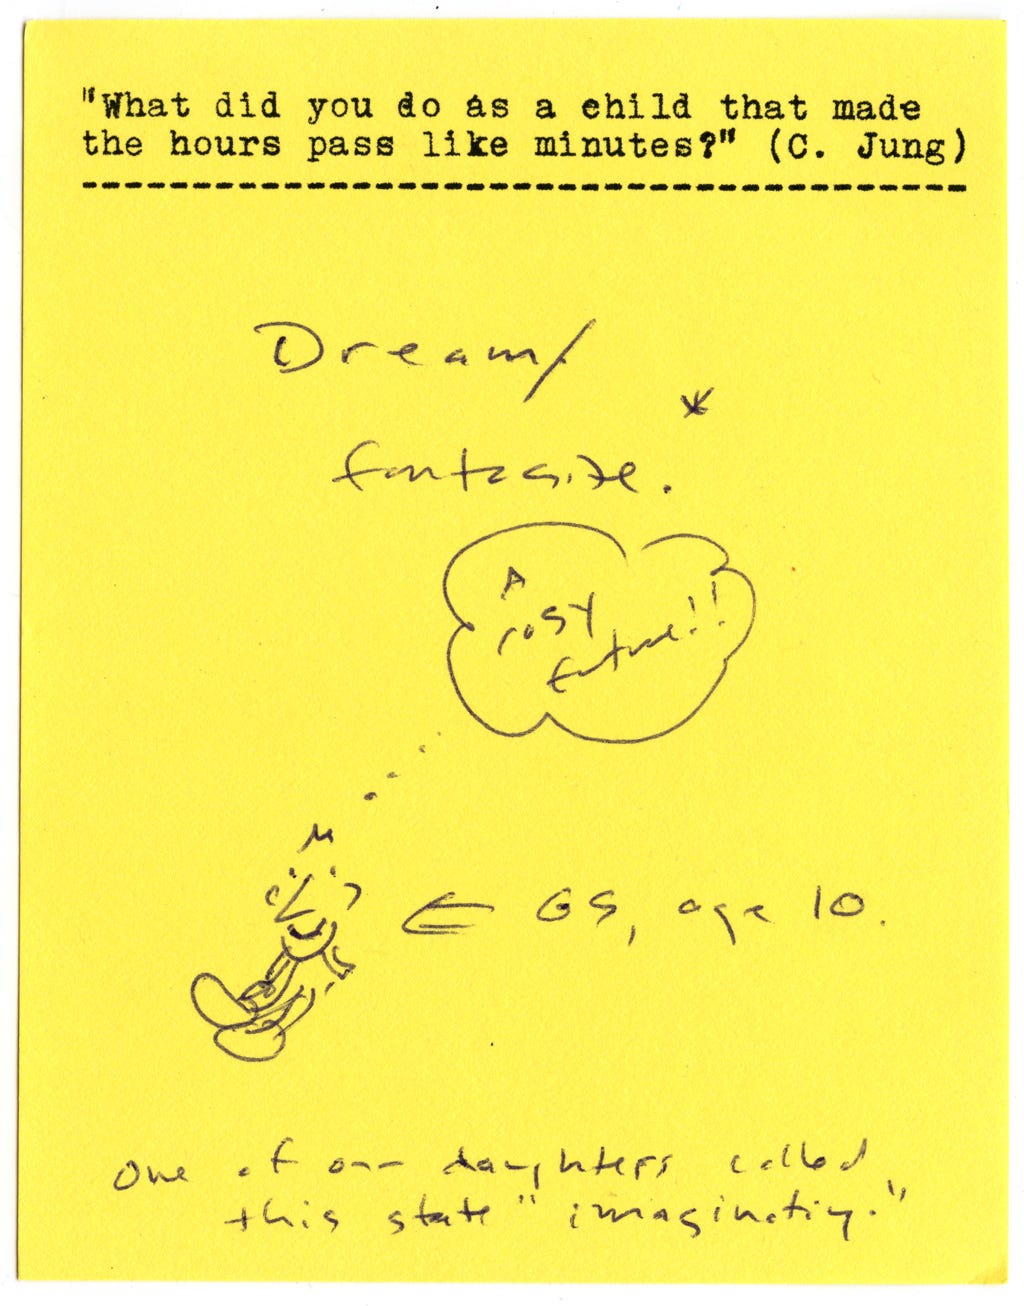 "What did you do as a child that made
the hours pass like minutes?" (C. Jung)
Dream/
*
fantasize.
A
rosy
future!!
GS, age 10.
One of our daughters called
this state "imaginatiy."